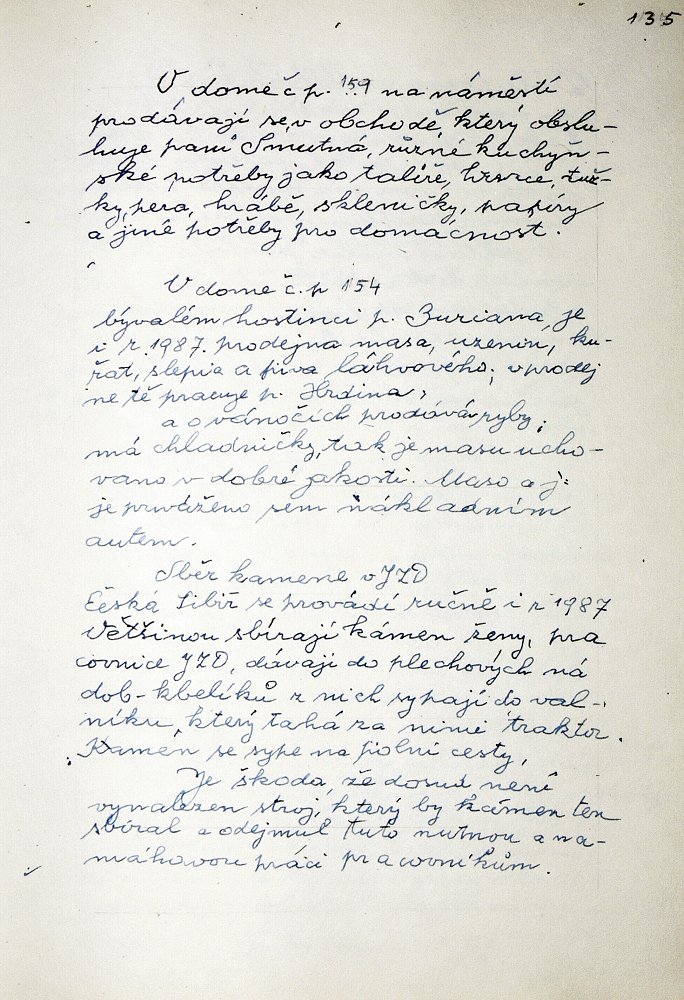 135
V domě č p. 159 na náměstí
prodávají se, v obchodě, který obslu-
huje paní Smutná, různé kuchyň-
ské potřeby jako talíře, hrnce, tuž-
ky, pera, hrábě, skleničky, papíry
a jiné potřeby pro domácnost.
V domě č. p 154
bývalém hostinci p. Buriana, je
i r. 1987. prodejna masa, uzenin, ku-
řat, slepic a piva láhvového; v prodej
ně té pracuje p. Hrdina,
a o vánočích prodává ryby,
má chladničky, tak je maso ucho-
váno v dobré jakosti. Maso a j:
je přiváženo sem nákladním
autem.
Sběr kamene v JZD
Česká Sibiř se provádí ručně i r 1987
Většinou sbírají kámen ženy, pra
covnice JZD, dávají do plechových ná
dob - kbelíků z nich sypají do val-
níku, který tahá za nimi traktor.
Kámen se sype na polní cesty,
Je škoda, že dosud není
vynalezen stroj, který by kámen ten
sbíral a odejmul tuto nutnou a na-
máhavou práci pracovníkům.